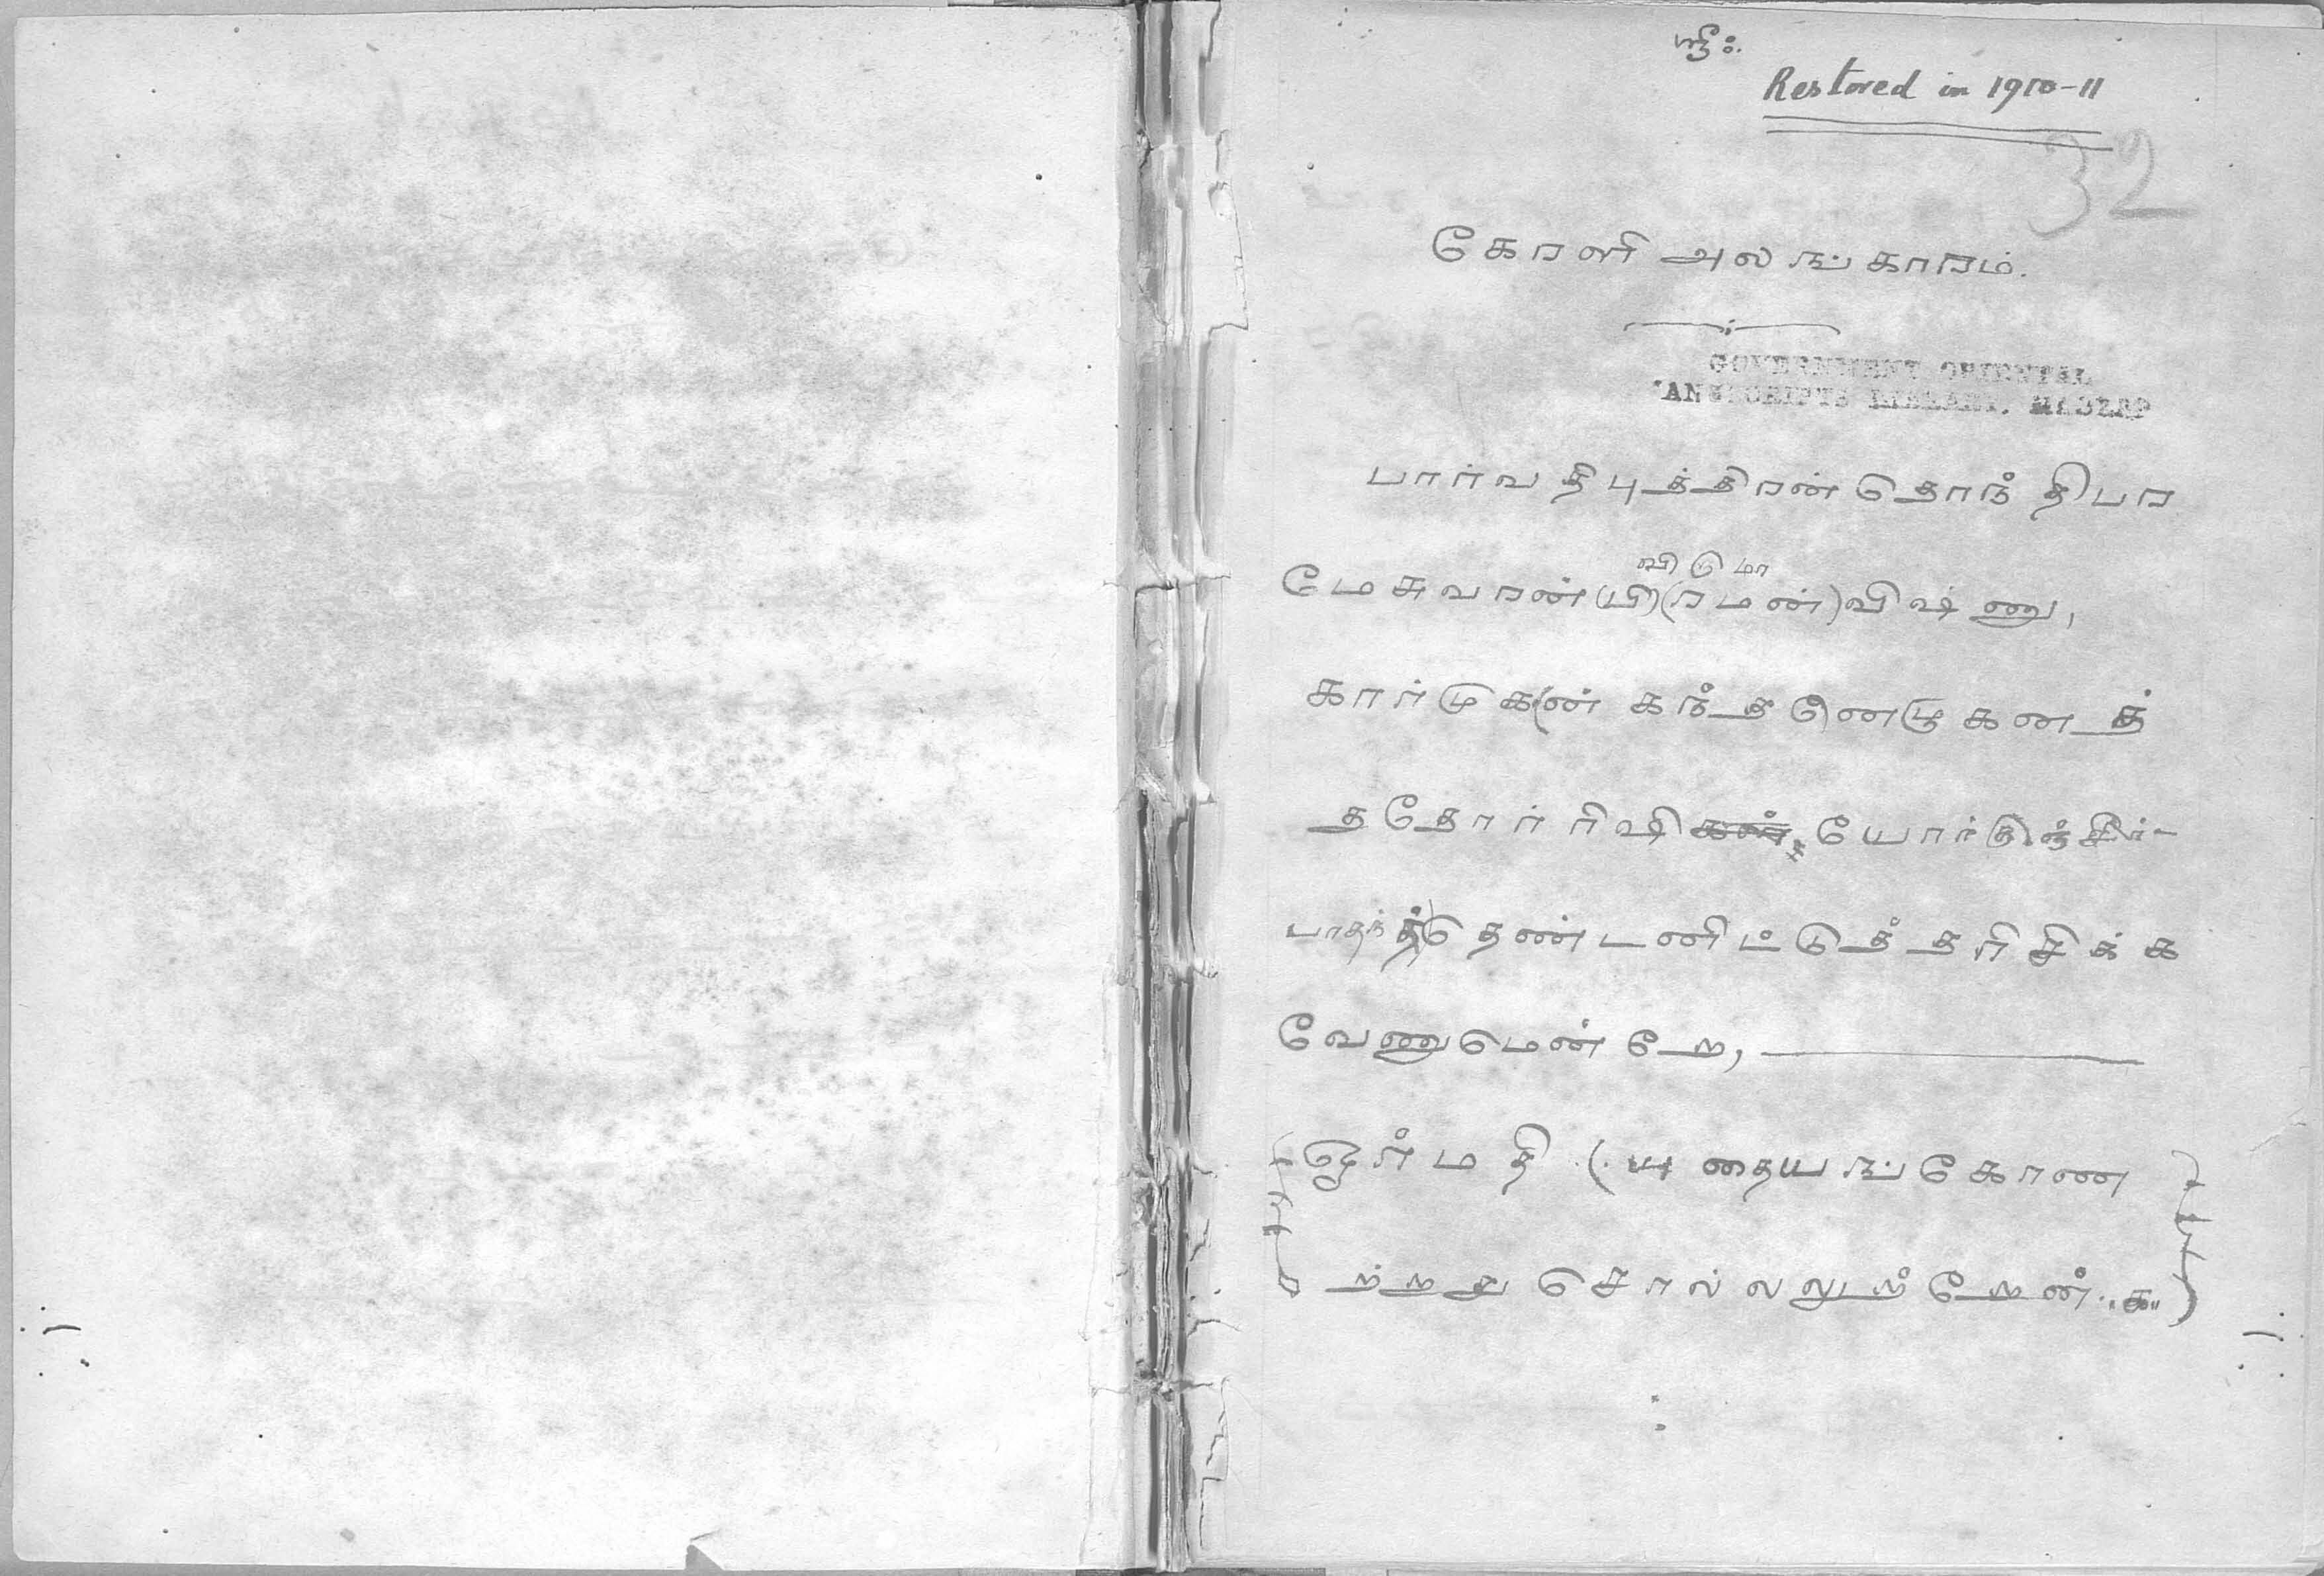 ஸ்ரீ:
Restored in 1910-11
32
கோளி அலங்காரம்.
GOVERNMENT ORIENTAL
MANUSCRIPTS LIBRARY, MADRAS
பார்வதிபுத்திரன் தொந்திபர
விடுமா
மேசுவரன் (பி) (ரமன்) விஷ்ணு,
கார்முகன் கந்தனேடு கனத்
ததோர் ரிஷி
பாதந் தெண்டனிட்டுத் தரிசிக்க
வேணுமென்றே,
ஓர்மதி கோண
ற்றது சொல்லலுற்றேன். "க"